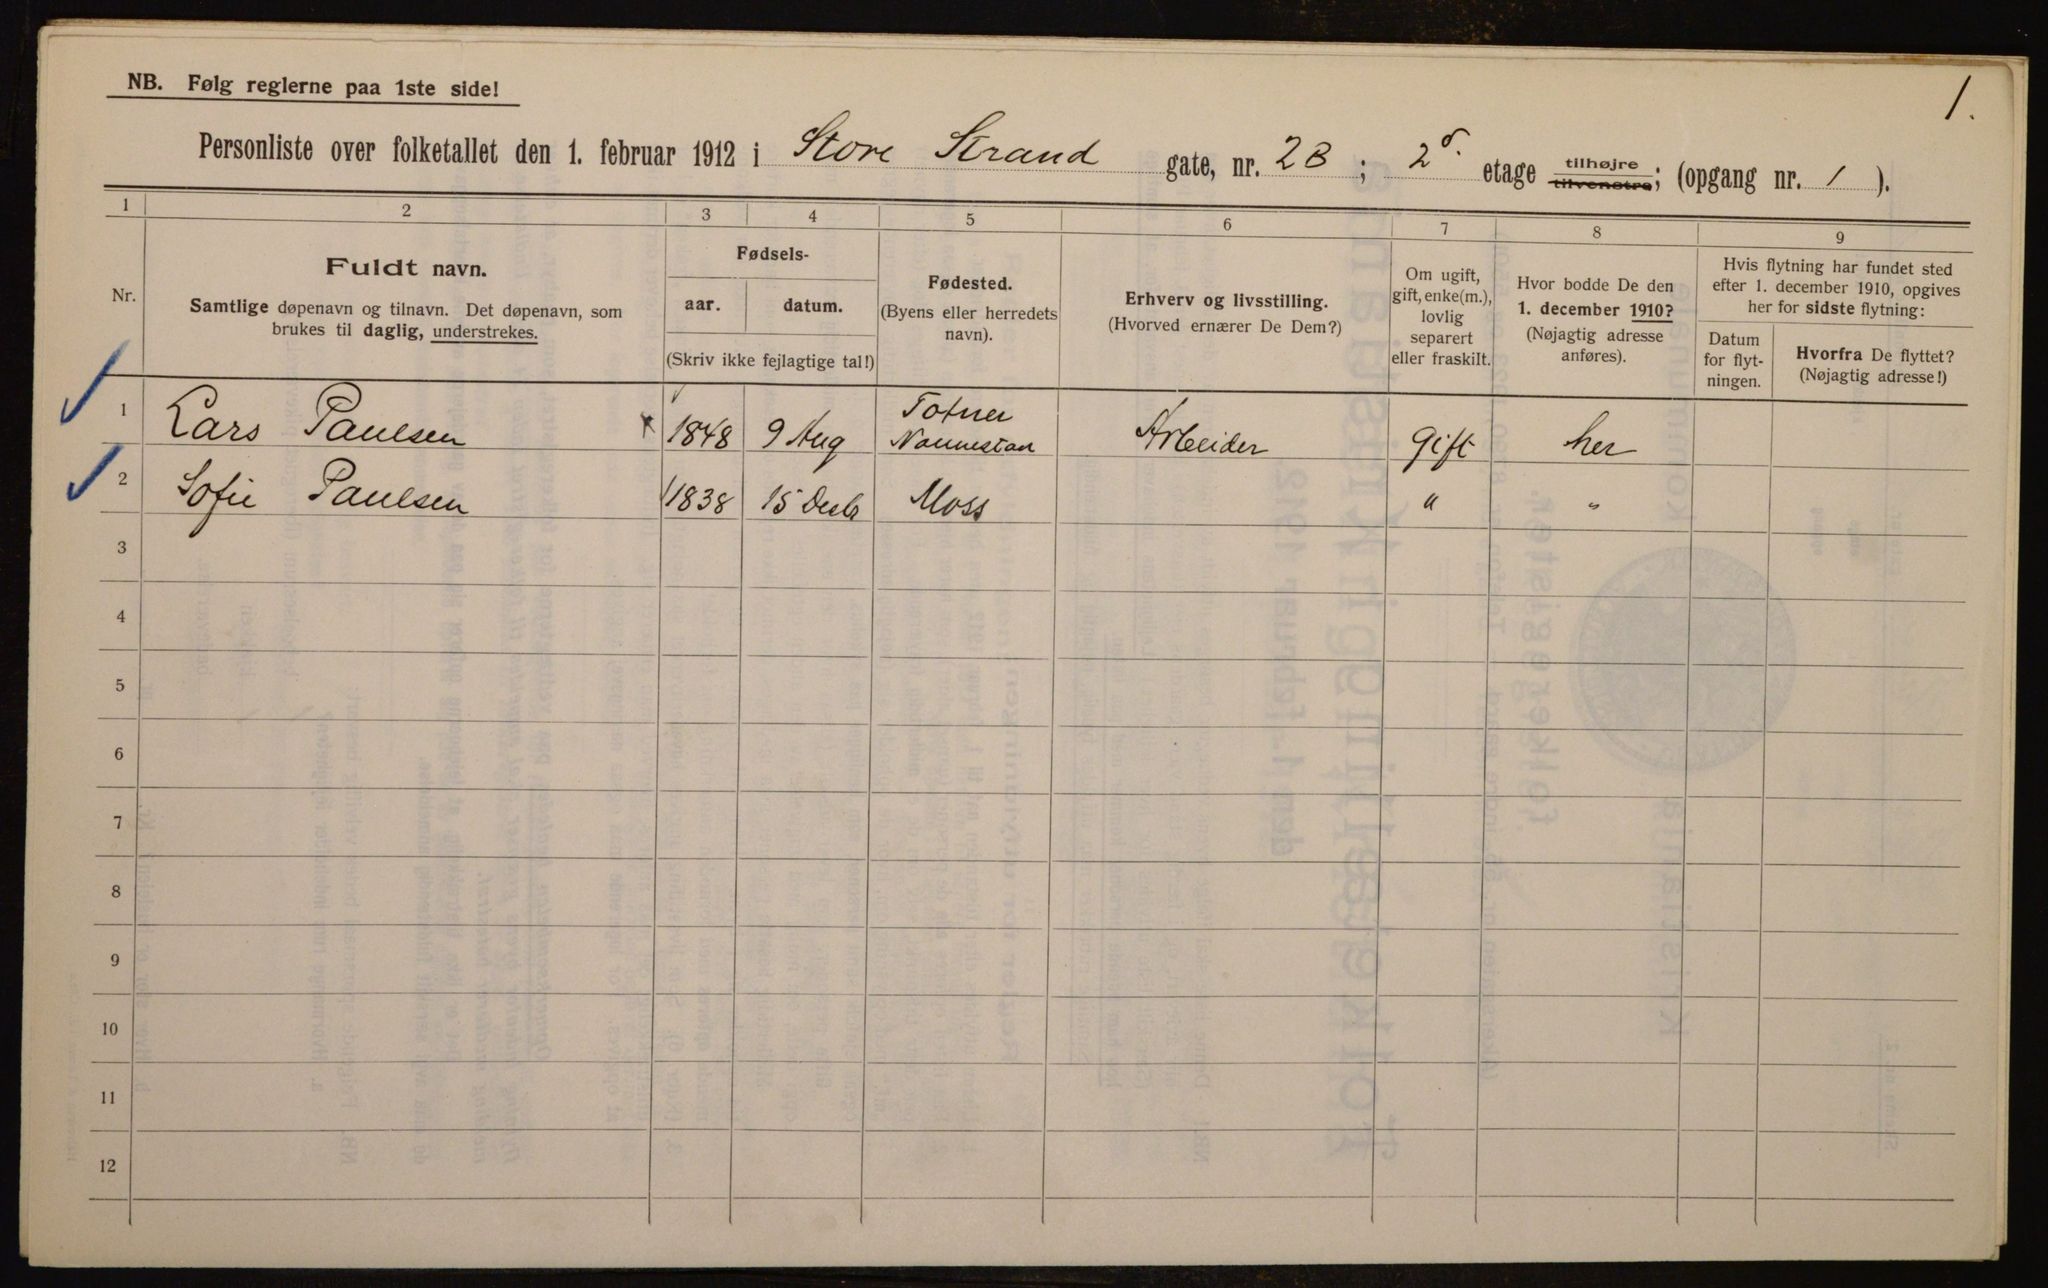 1.
NB. Følg reglerne paa 1ste side!
Personliste over folketallet den 1. februar 1912 i Store Strand gate, nr. 2B ; 2 etage tilhøjre tilvenstre; (opgang nr. 1 ).
1 2 3 4 5 6 7 8 9
Nr.
Fuldt navn.
Samtlige døpenavn og tilnavn. Det døpenavn, som
brukes til daglig, understrekes.
Fødsels-
aar. datum.
(Skriv ikke fejlagtige tal!)
Fødested.
(Byens eller herredets
navn).
Erhverv og livsstilling.
(Hvorved ernærer De Dem?)
Om ugift,
gift, enke(m.),
lovlig
separert
eller fraskilt.
Hvor bodde De den
1. december 1910?
(Nøjagtig adresse
anføres).
Hvis flytning har fundet sted
efter 1. december 1910, opgives
her for sidste flytning:
Datum
for flyt-
ningen.
Hvorfra De flyttet?
(Nøjagtig adresse!)
1 Lars Paulsen 1848 9 Aug Nannestad Arbeider Gift her
2 Sofie Paulsen 1838 15 Desb Moss " "
3
4
5
6
7
8
9
10
11
12